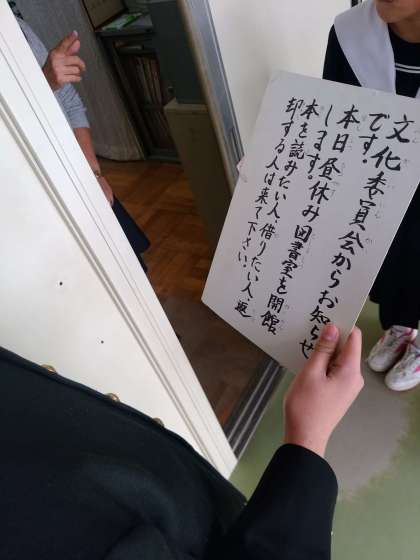 文化委員会からお知らせ
です。
本日昼休み図書室を開館
します。
本を読みたい人、借りたい人、返
却する人は来て下さい。